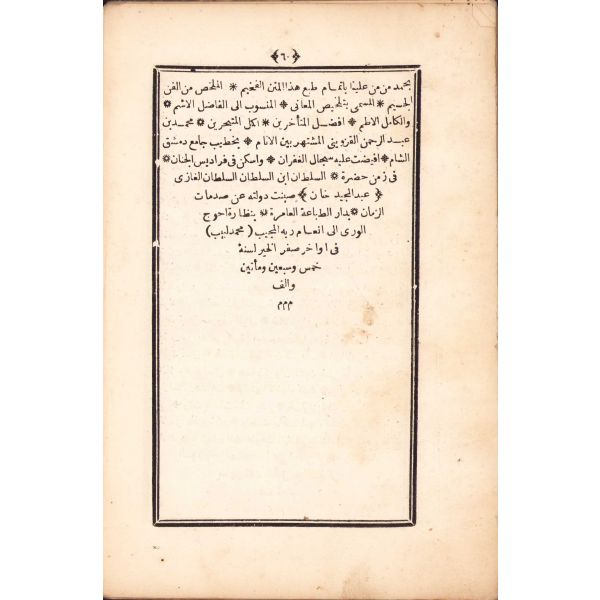 ﴿٦٠﴾
بحمد من من علينا باتمام طبع هذا المتن الفخيم * الملخص من الفن
الجسيم * المسمى بتلخيص المعانى * المنسوب الى الفاضل الاشم *
والكامل الاطم * افضل المتأخرين * اكمل المتبحرين * محمد بن
عبد الرحمن القزوينى المشتهر بين الانام * بخطيب جامع دمشق
الشام * افيضت عليه سجال الغفران * واسكن فى فراديس الجنان *
فى زمن حضرة * السلطان ابن السلطان السلطان الغازى
﴿ عبد المجيد خان ﴾ صينت دولته عن صدمات
الزمان * بدار الطباعة العامرة * بنظارة احوج
الورى الى انعام ربه المجيب ( محمد لبيب )
فى اواخر صفر الخير لسنة
خمس وسبعين ومأتين
والف
م م م